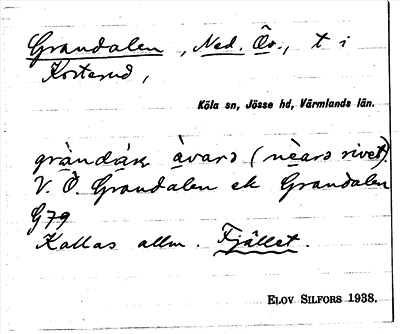 Grandalen, Ned. Öv., t i
Korterud,
Köla sn, Jösse hd, Värmlands län.
gràndák àvarɔ (nèarɔ rivet).
V. Ö. Grandalen ek Grandalen
G79
Kallas allm. Fjället.
ELOV SILFORS 1938.